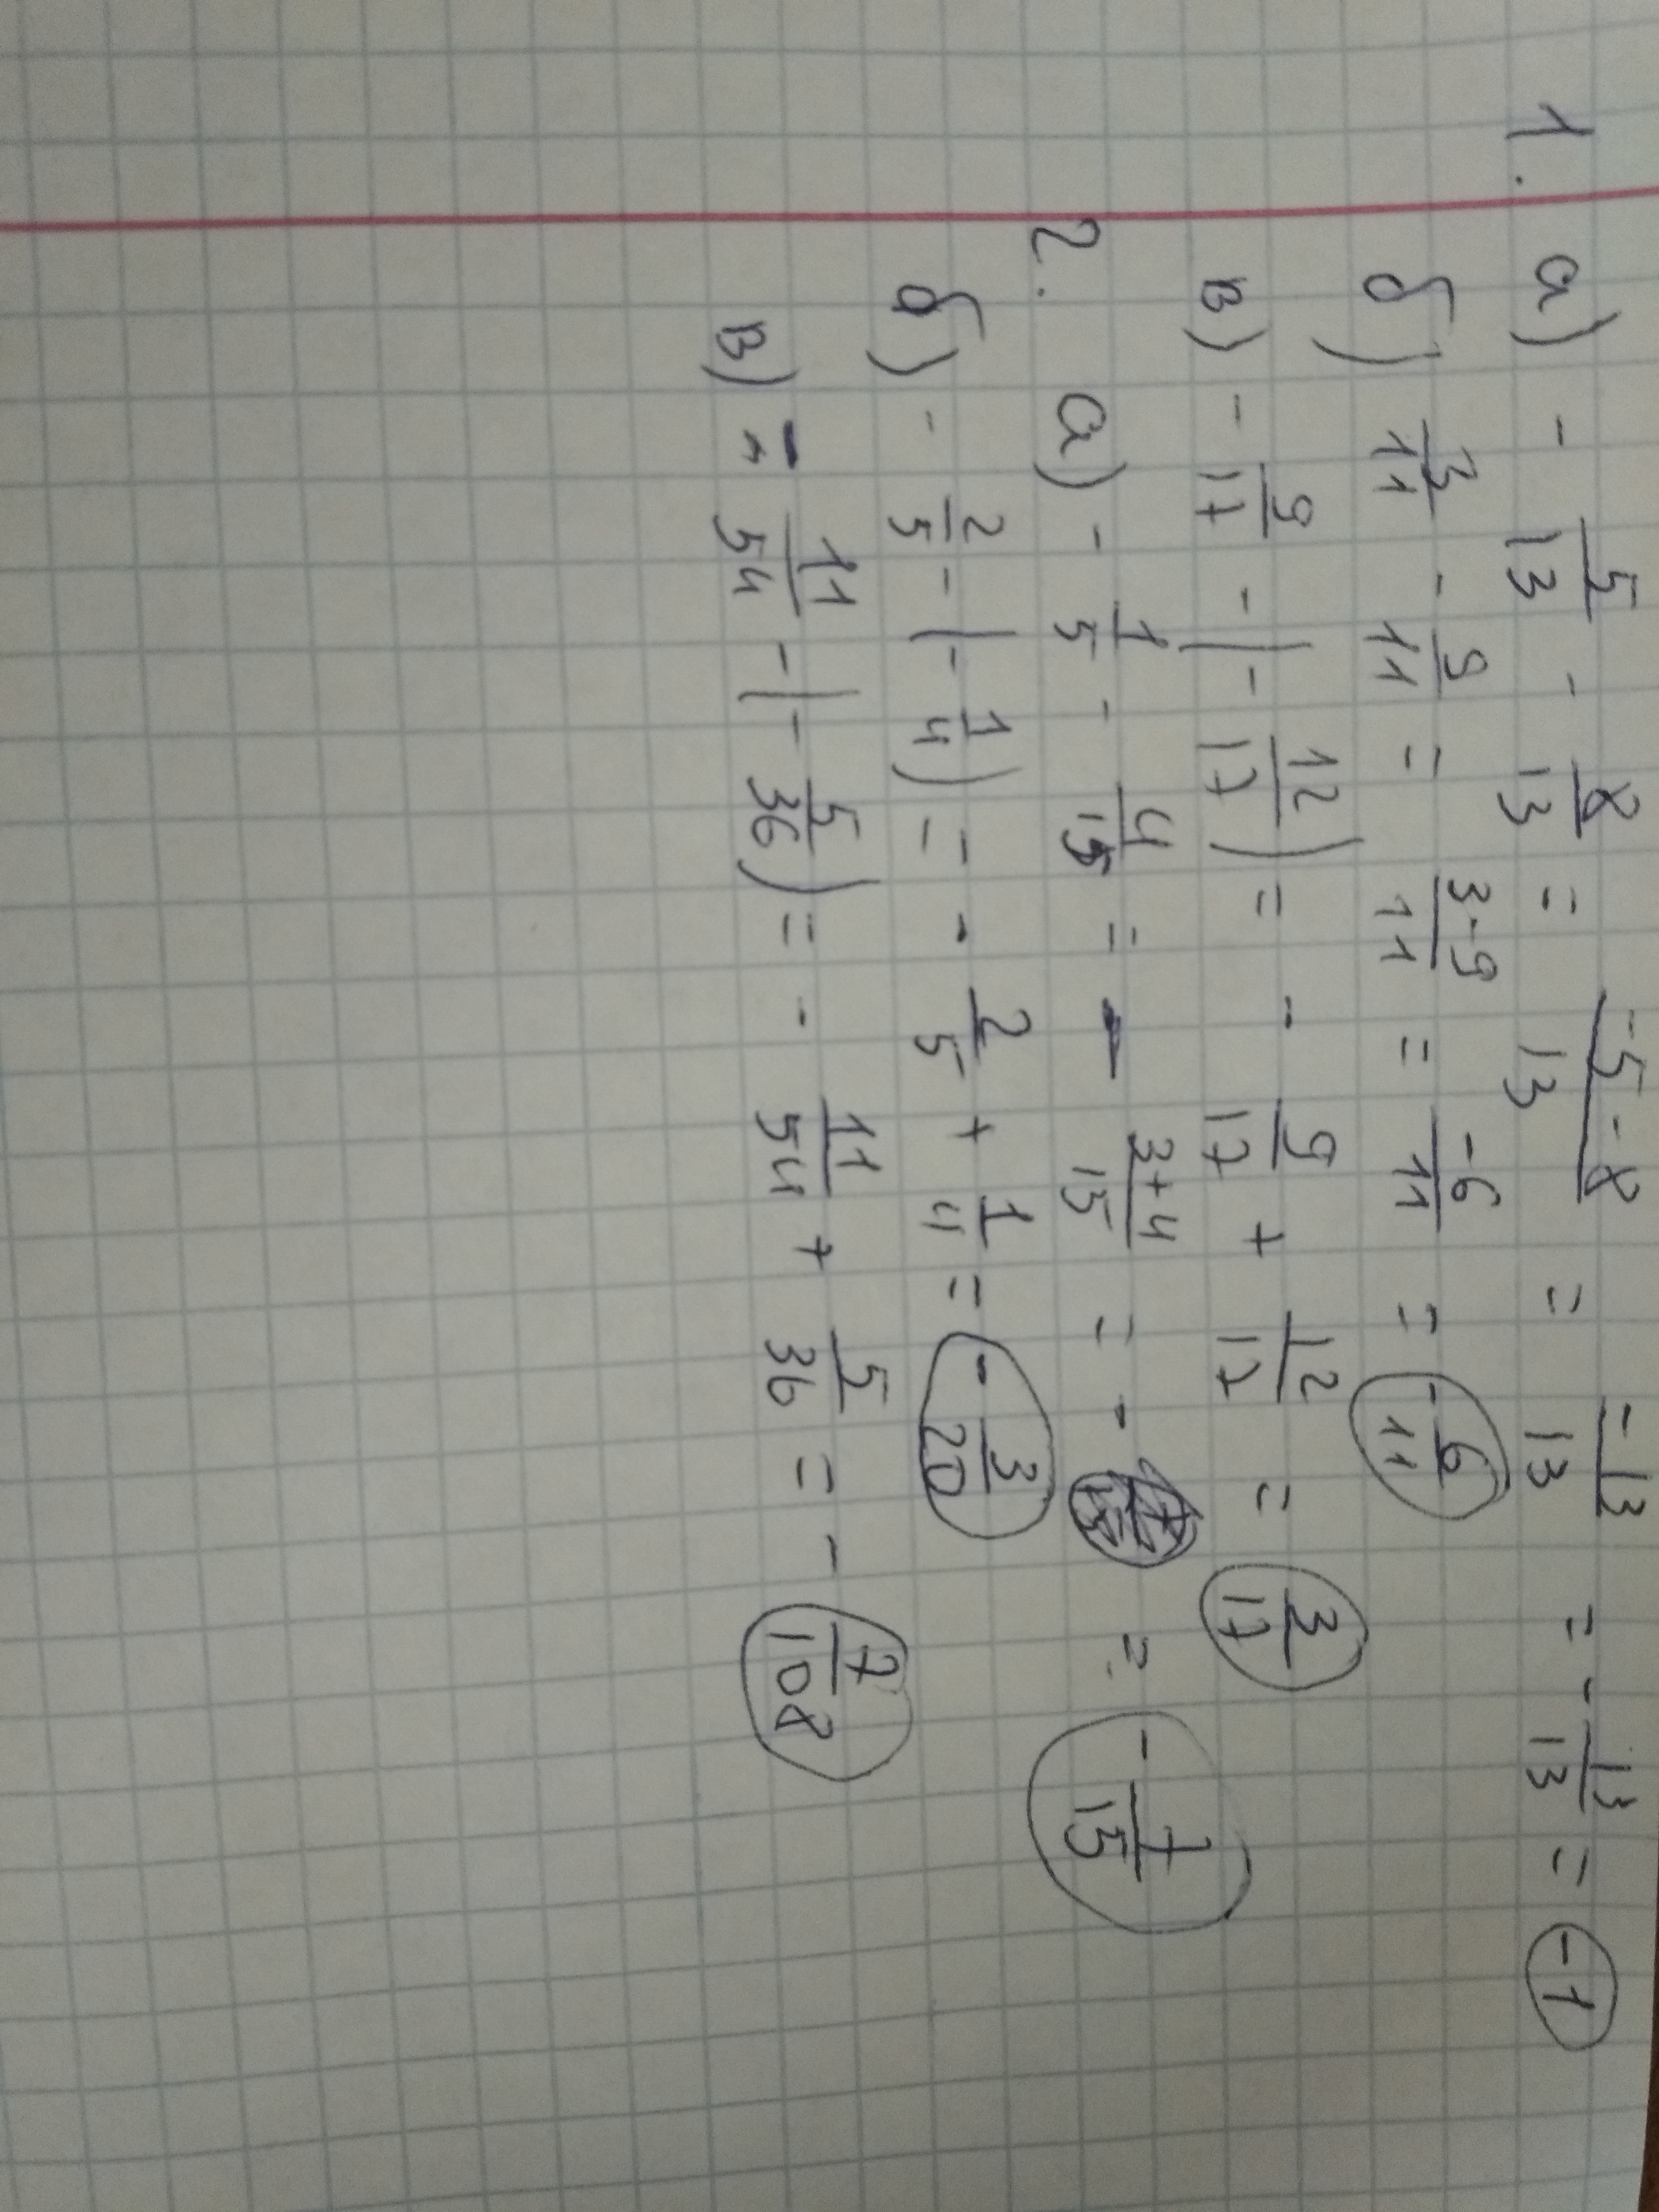 1. а) - 5/13 - 8/13 = -5-8/13 = -13/13 = - 13/13 = -1
б) 3/11 - 9/11 = 3-9/11 = -6/11 = - 6/11
в) - 9/17 - (- 12/17) = - 9/17 + 12/17 = 3/17
2. а) - 1/5 - 4/15 = - 3+4/15 = - = - 7/15
б) - 2/5 - (- 1/4) = - 2/5 + 1/4 = - 3/20
в) - 11/54 - (- 5/36) = - 11/54 + 5/36 = - 7/108